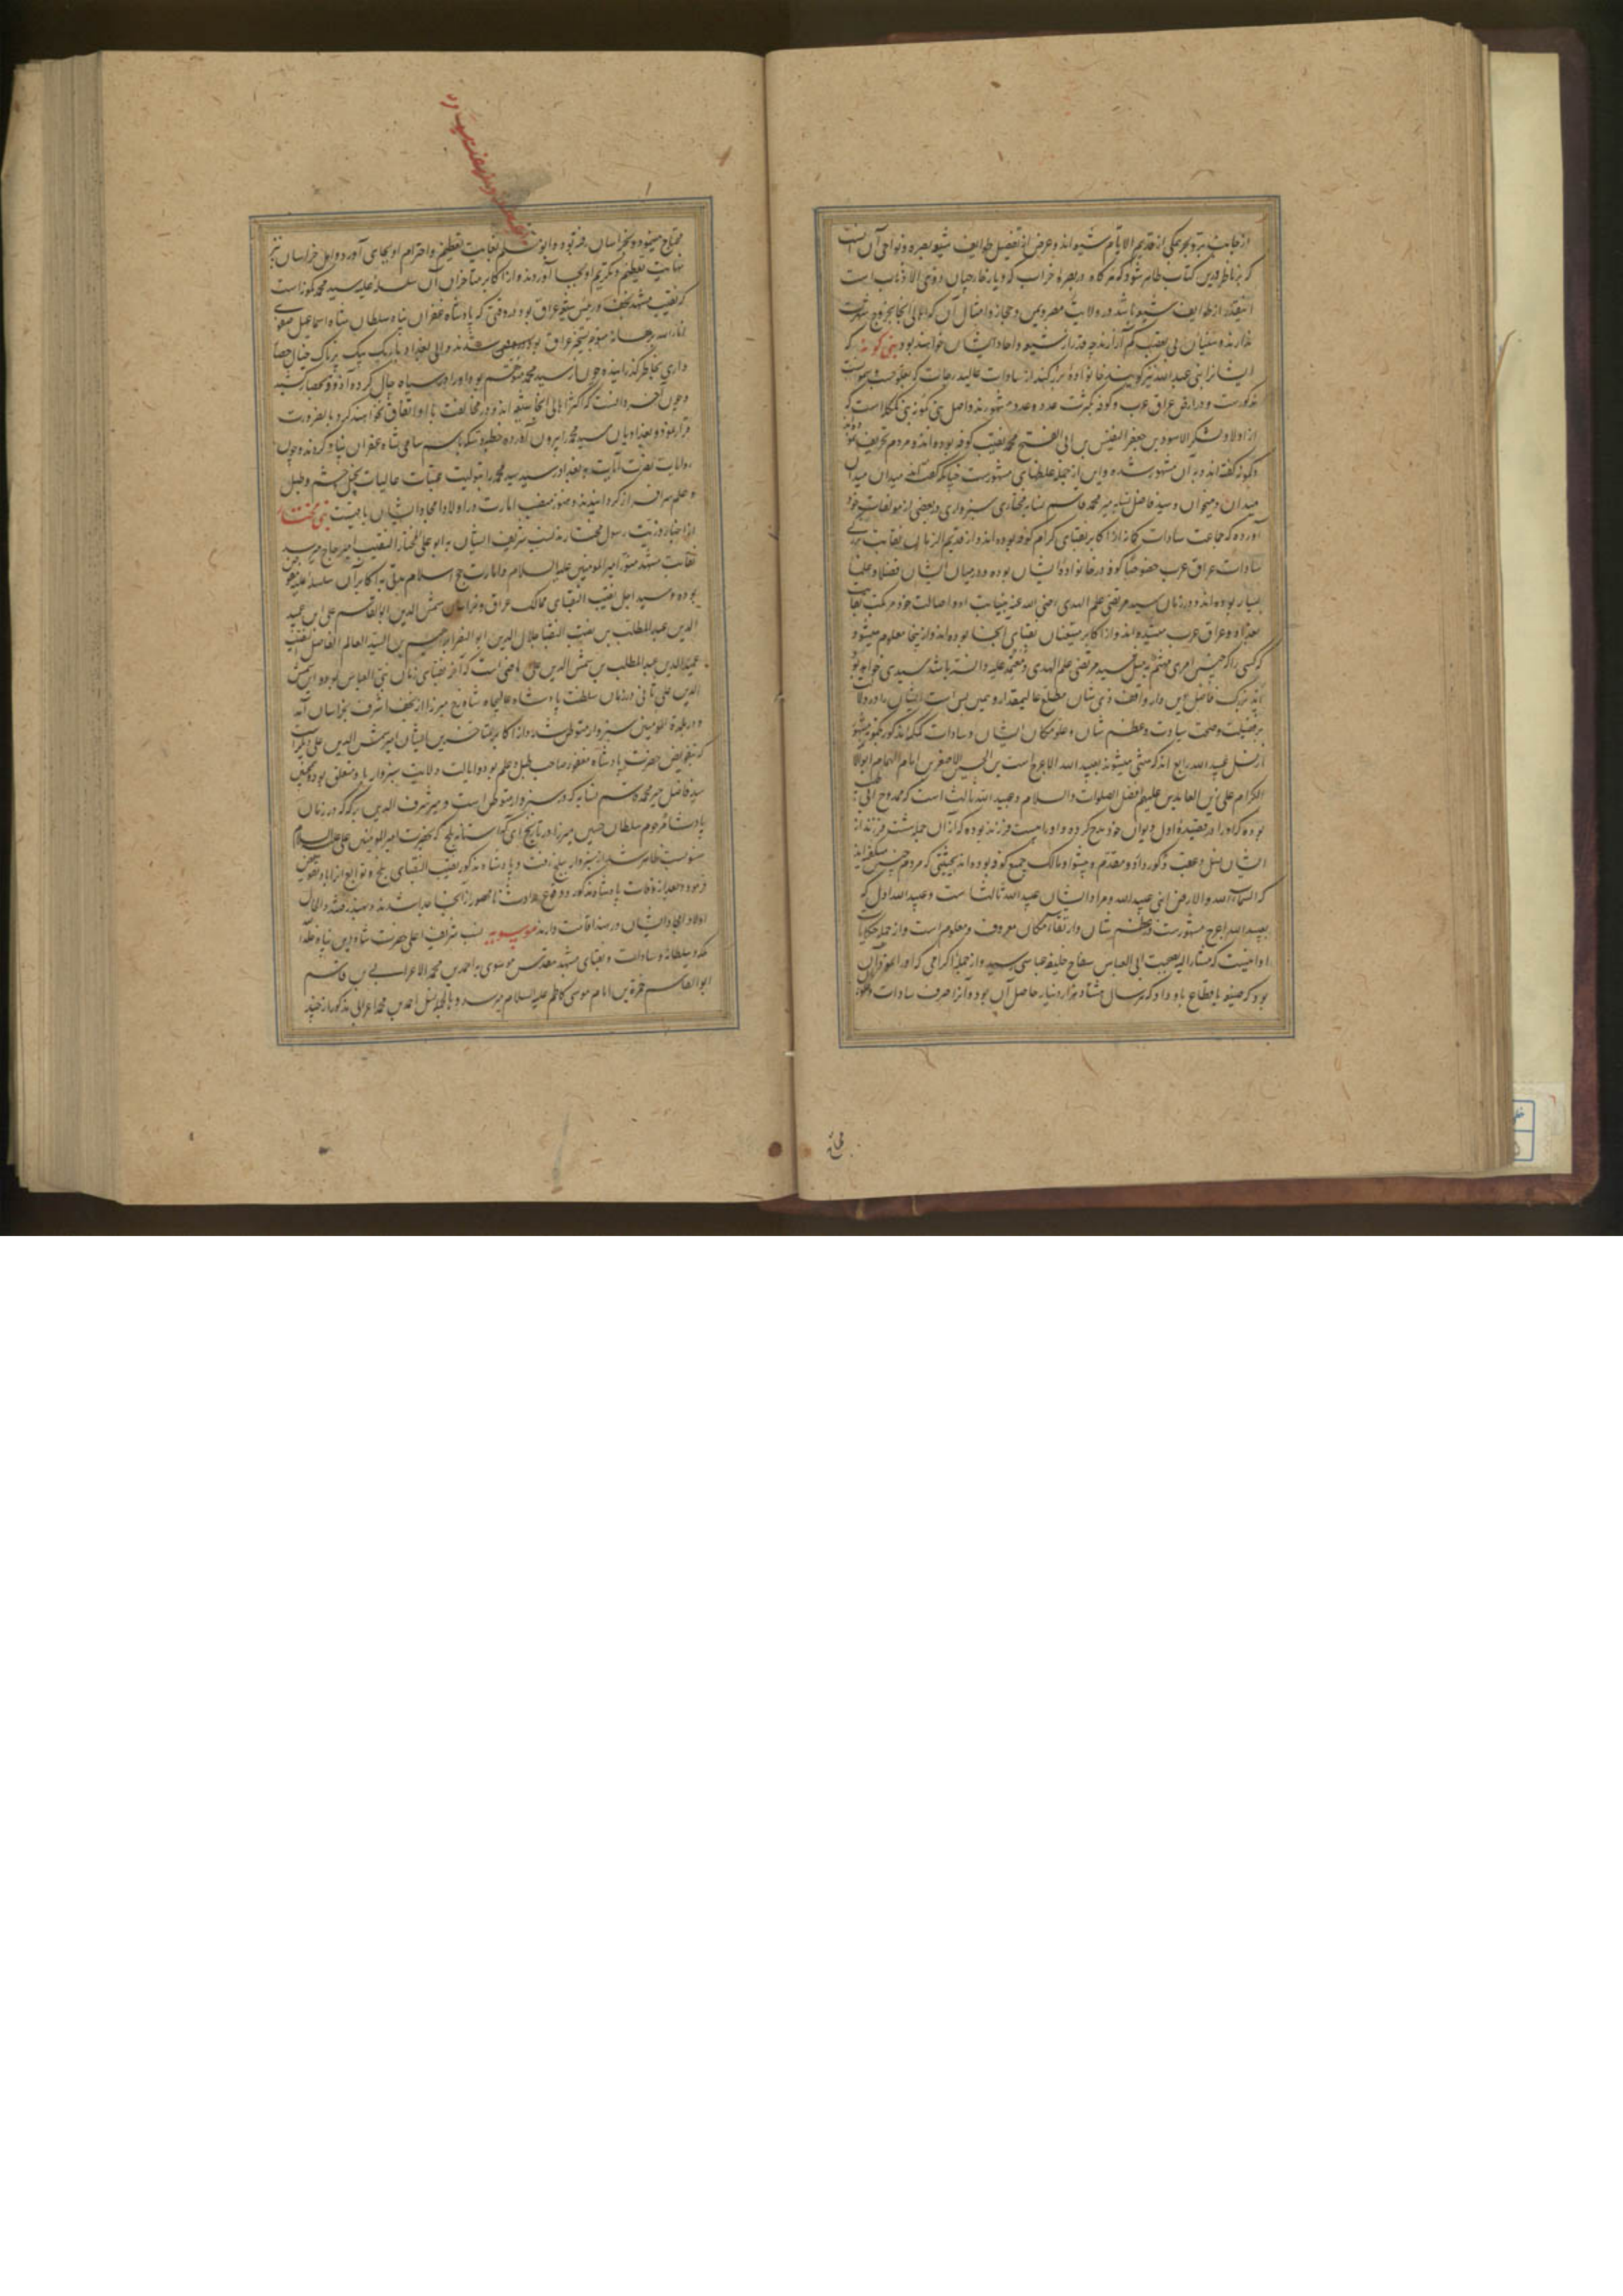 که بر ناظر این کتاب ظاهر شود که هرگاه در بصرهٔ خراب که دیار خارجیان و ذوی الاذناب است
اینقدر از طوایف شیعه باشد در ولایت مصر و یمن و حجاز و امثال آن که اهالی آنجا بخروج شهرت
ندارند و سنیان بی تعصب کم آزارند چه قدر از شیعه و احاد ایشان خواهند بود بنی کمونه که
ایشانرا بنی عبد الله نیز گویند خانوادهٔ بزرگند از سادات عالیدرجات که بعلو حسب و سمو نسب
مذکورست و در ارض عراق عرب و کوفه بکثرت عدد و عدد مشهورند و اصل بنی کمونه بنی کمکلا است که
از اولاد شکر الاسود بن جعفر النفیس بن ابی الفتح محمد نقیب کوفه بوده اند و مردم تحریف نموده
و کمونه گفته اند و بان مشهور شده و این از جمله غلطهای مشهورست چنانکه گفته
میدان و میخوان و سید فاضل نسابه میر محمد قاسم نسابه مختاری سبزواری در بعضی از مولفات خود
آورده که جماعت سادات کمونه از اکابر نقبای کرام کوفه بوده اند و از قدیم الزمان نقابت
سادات عراق عرب خصوصا کوفه در خانوادهٔ ایشان بوده و در میان ایشان فضلا و علما
بسیار بوده اند و در زمان سید مرتضی علم الهدی رضی الله عنه بنیابت او و اصالت خود مرتکب نقابت
بغداد و عراق عرب میشده اند و از اکابر متعینان نقبای آنجا بوده اند و از اینجا معلوم میشود
که کسی را که در چنین امری مهم مثل سید مرتضی علم الهدی معتمد علیه دانسته باشد سیدی خواهد بود
بر فضیلت و صحت سیادت و عظم شان و علو مکان ایشان و سادات
از نسل عبید الله رابع اند که منتهی میشوند بعبید الله الاعرج است بن الحسین الاصغر بن امام الهمام ابو الائمه
الکرام علی زین العابدین علیهم افضل الصلوات و السلام و عبید الله ثالث است که ممدوح ابی طیب
بوده که او را در قصیدهٔ اول دیوان خود مدح کرده و او را بیست فرزند بوده که از آن جمله هشت فرزند از
ایشان نسل و عقب ذکور داد و مقدم و پیشوا و مالک جمیع کوفه بوده اند بحیثیتی که مردم چنین میگفته اند
که السماء لله و الارض لبنی عبید الله و مراد ایشان عبید الله ثالث است و عبید الله اول که
بعبید الله اعرج مشهورست و عظم شان و ارتفاع مکان معروف و معلوم است و از جمله حکایات
او اینست که مشار الیه بصحبت ابی العباس سفاح خلیفه عباسی رسید و از جمله اکرامی که او را نمود آن
بود که ضیعه باقطاع باو داد که هر سال هشتاد هزار دینار حاصل آن بود و آنرا صرف سادات و علویه
محتاج مینمود و بخراسان رفته بود و ابو مسلم بغایت تعظیم و احترام او بجای آورد و اهل خراسان نیز
نهایت تعظیم و تکریم او بجا آوردند و از اکابر متاخران آن سلسله علیه سید محمد کمونه است
که نقیب مشهد نجف و رئیس شیعه عراق بود در وقتی که پادشاه غفران پناه سلطان شاه اسماعیل صفوی
انار الله برهانه متوجه تسخیر عراق بود والی بغداد باریک بیک پرناک خیال حصار
داری بخاطر گذرانیده چون از سید محمد متوهم بود او را در سیاه چال کرده آذوقه بحصار کشید
و چون آخر دانست که اکثر اهالی آنجا شیعه اند و در مخالفت با او اتفاق نخواهند کرد بالضرورت
فرار نمود و بغدادیان سید محمد را بیرون آورده خطبه و سکه باسم سامی شاه غفران پناه کردند و چون
رایات نصرت آیات ببغداد رسید سید محمد را بتولیت عتبات عالیات بخیل و حشم و طبل
و علم سرافراز گردانیدند و هنوز منصب امارت در اولاد امجاد ایشان باقیست بنی مختار
از احفاد و ذریت رسول مختارند نسب شریف ایشان به ابو علی المختار النقیب امیر حاج میرسد
نقابت مشهد منور امیر المومنین علیه السلام و امارت حج اسلام مدتی به اکابر آن سلسله علیه مفوض
بوده و سید اجل نقیب النقبای ممالک عراق و خراسان شمس الدین ابو القاسم علی بن عمید
الدین عبد المطلب بن نقیب النقبا جلال الدین ابو النصر ابراهیم بن السید العالم الفاضل النقیب
عمید الدین عبد المطلب بن شمس الدین علی ماضی است که آخر نقبای زمان بنی العباس بوده این شمس
الدین علی ثانی در زمان سلطنت پادشاه عالیجاه شاه رخ میرزا از نجف اشرف بخراسان آمد
و در بلدة المومنین سبزوار متوطن شد و از اکابر متاخرین ایشان امیر شمس الدین علی
که بتفویض حضرت پادشاه مغفور صاحب طبل و علم بود و ایالت ولایت سبزوار باو متعلق بود و همچنین
سید فاضل میر محمد قاسم نسابه که در سبزوار متوطن است و میر شرف الدین بزرگ که در زمان
پادشاه مرحوم سلطان حسین میرزا در تاریخی که آستانه بلخ که بحضرت امیر المومنین علی علیه السلام
منسوبست ظاهر شد از سبزوار ببلخ رفت و پادشاه مذکور نقیب النقبای بلخ و توابع آنرا باو تفویض
فرمود و بعد از وفات پادشاه مذکور و وقوع حوادث نامحصور از آنجا جدا شدند و بهند رفتند و الحال
اولاد امجاد ایشان در هند اقامت دارند موسویه نسب شریف اعلی حضرت شاه دین پناه خلد الله
ملکه و سلطانه و سادات و نقبای مشهد مقدس موسوی به احمد بن محمد الاعرابی بن قاسم
ابو القاسم حمزة بن امام موسی کاظم علیه السلام میرسد و بالجمله نسل احمد بن محمد اعرابی مذکور از چند